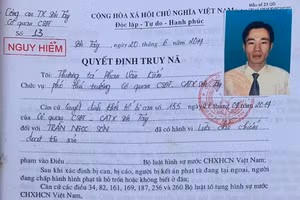 Công an TX Sơn Tây
CỘNG HÒA XÃ HỘI CHỦ NGHĨA VIỆT NAM
Mẫu số 23
Cơ quan CSĐT
Độc lập - Tự do - Hạnh phúc
Số 13
NGUY HIỂM
Sơn Tây, ngày 20 tháng 6 năm 2014
QUYẾT ĐỊNH TRUY NÃ
Tôi: Thượng tá Phan Văn
Chức vụ: phó thủ trưởng Cơ quan CSĐT - CATX Sơn Tây
Căn cứ Quyết định khởi tố bị can số 155 2014
của Cơ quan CSĐT - CATX Sơn Tây
đối với TRẦN NGỌC SƠN đã có hành vi Lừa đảo chiếm
đoạt tài sản
phạm vào Điều Bộ luật hình sự nước CHXHCN Việt Nam;
Sau khi xác định bị can, bị cáo, người bị kết án phạt tù đang tại ngoại, người đang
chấp hành hình phạt tù bỏ trốn hoặc không biết ở đâu;
Căn cứ các điều 34, 82, 161, 169, 187, 256 và 260 Bộ luật tố tụng hình sự nước
CHXHCN Việt Nam,